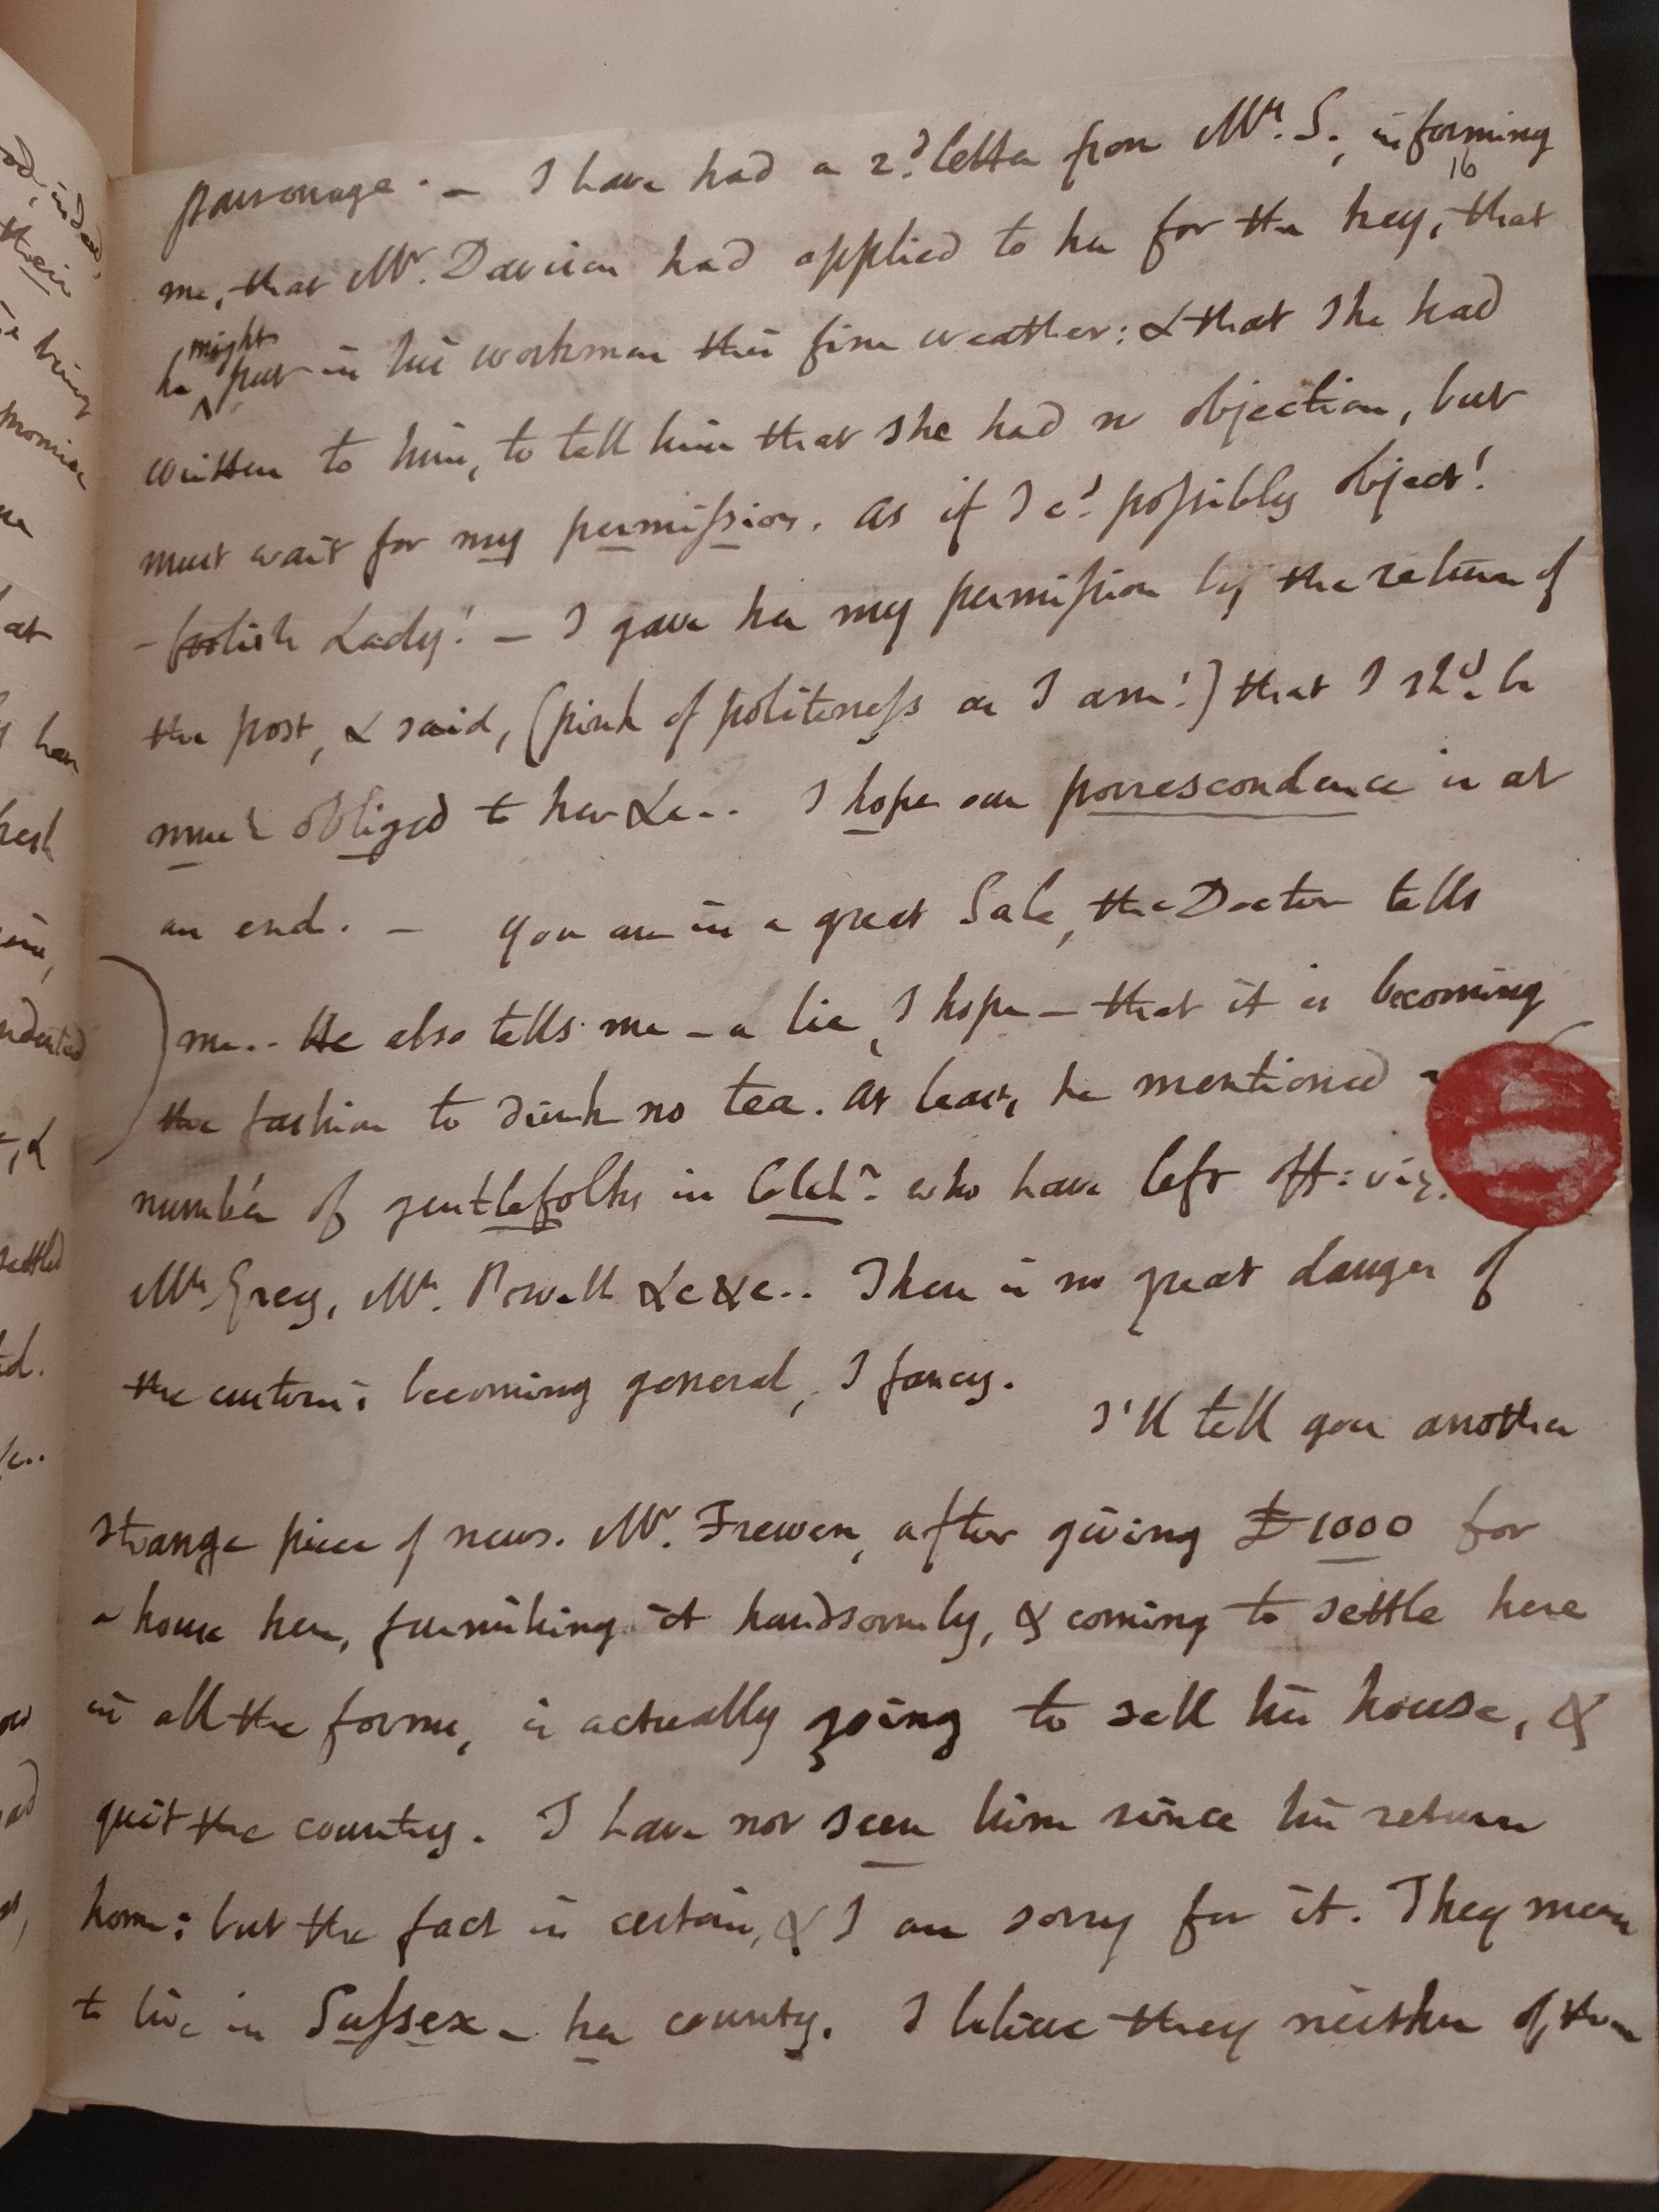 parsonage. — I have had a 2.d letter from Mrs. S., informing
16
me, that Mr. Davison had applied to her for the key, that
he might put in his workmen this fine weather: & that she had
written to him, to tell him that she had no objection, but
must wait for my permission. As if I cd. possibly object!
— foolish Lady! — I gave her my permission by the return of
the post, & said, (pink of politeness as I am!) that I shd. be
much obliged to her &c.. I hope our porrescondence is at
an end. — You are in a great Sale, the Doctor tells
me.. He also tells me — a lie, I hope — that it is becoming
the fashion to drink no tea. At least, he mentioned a
number of gentlefolks in Colchr. who have left off: viz.
Mrs Grey, Mrs. Powell &c &c.. There is no great danger of
the custom's becoming general, I fancy.
I'll tell you another
strange piece of news. Mr. Frewen, after giving £1000 for
a house here, furnishing it handsomely, & coming to settle here
in all the forms, is actually going to sell his house, &
quit the country. I have not seen him since his return
home: but the fact is certain, & I am sorry for it. They mean
to live in Sussex — her county. I believe they neither of them